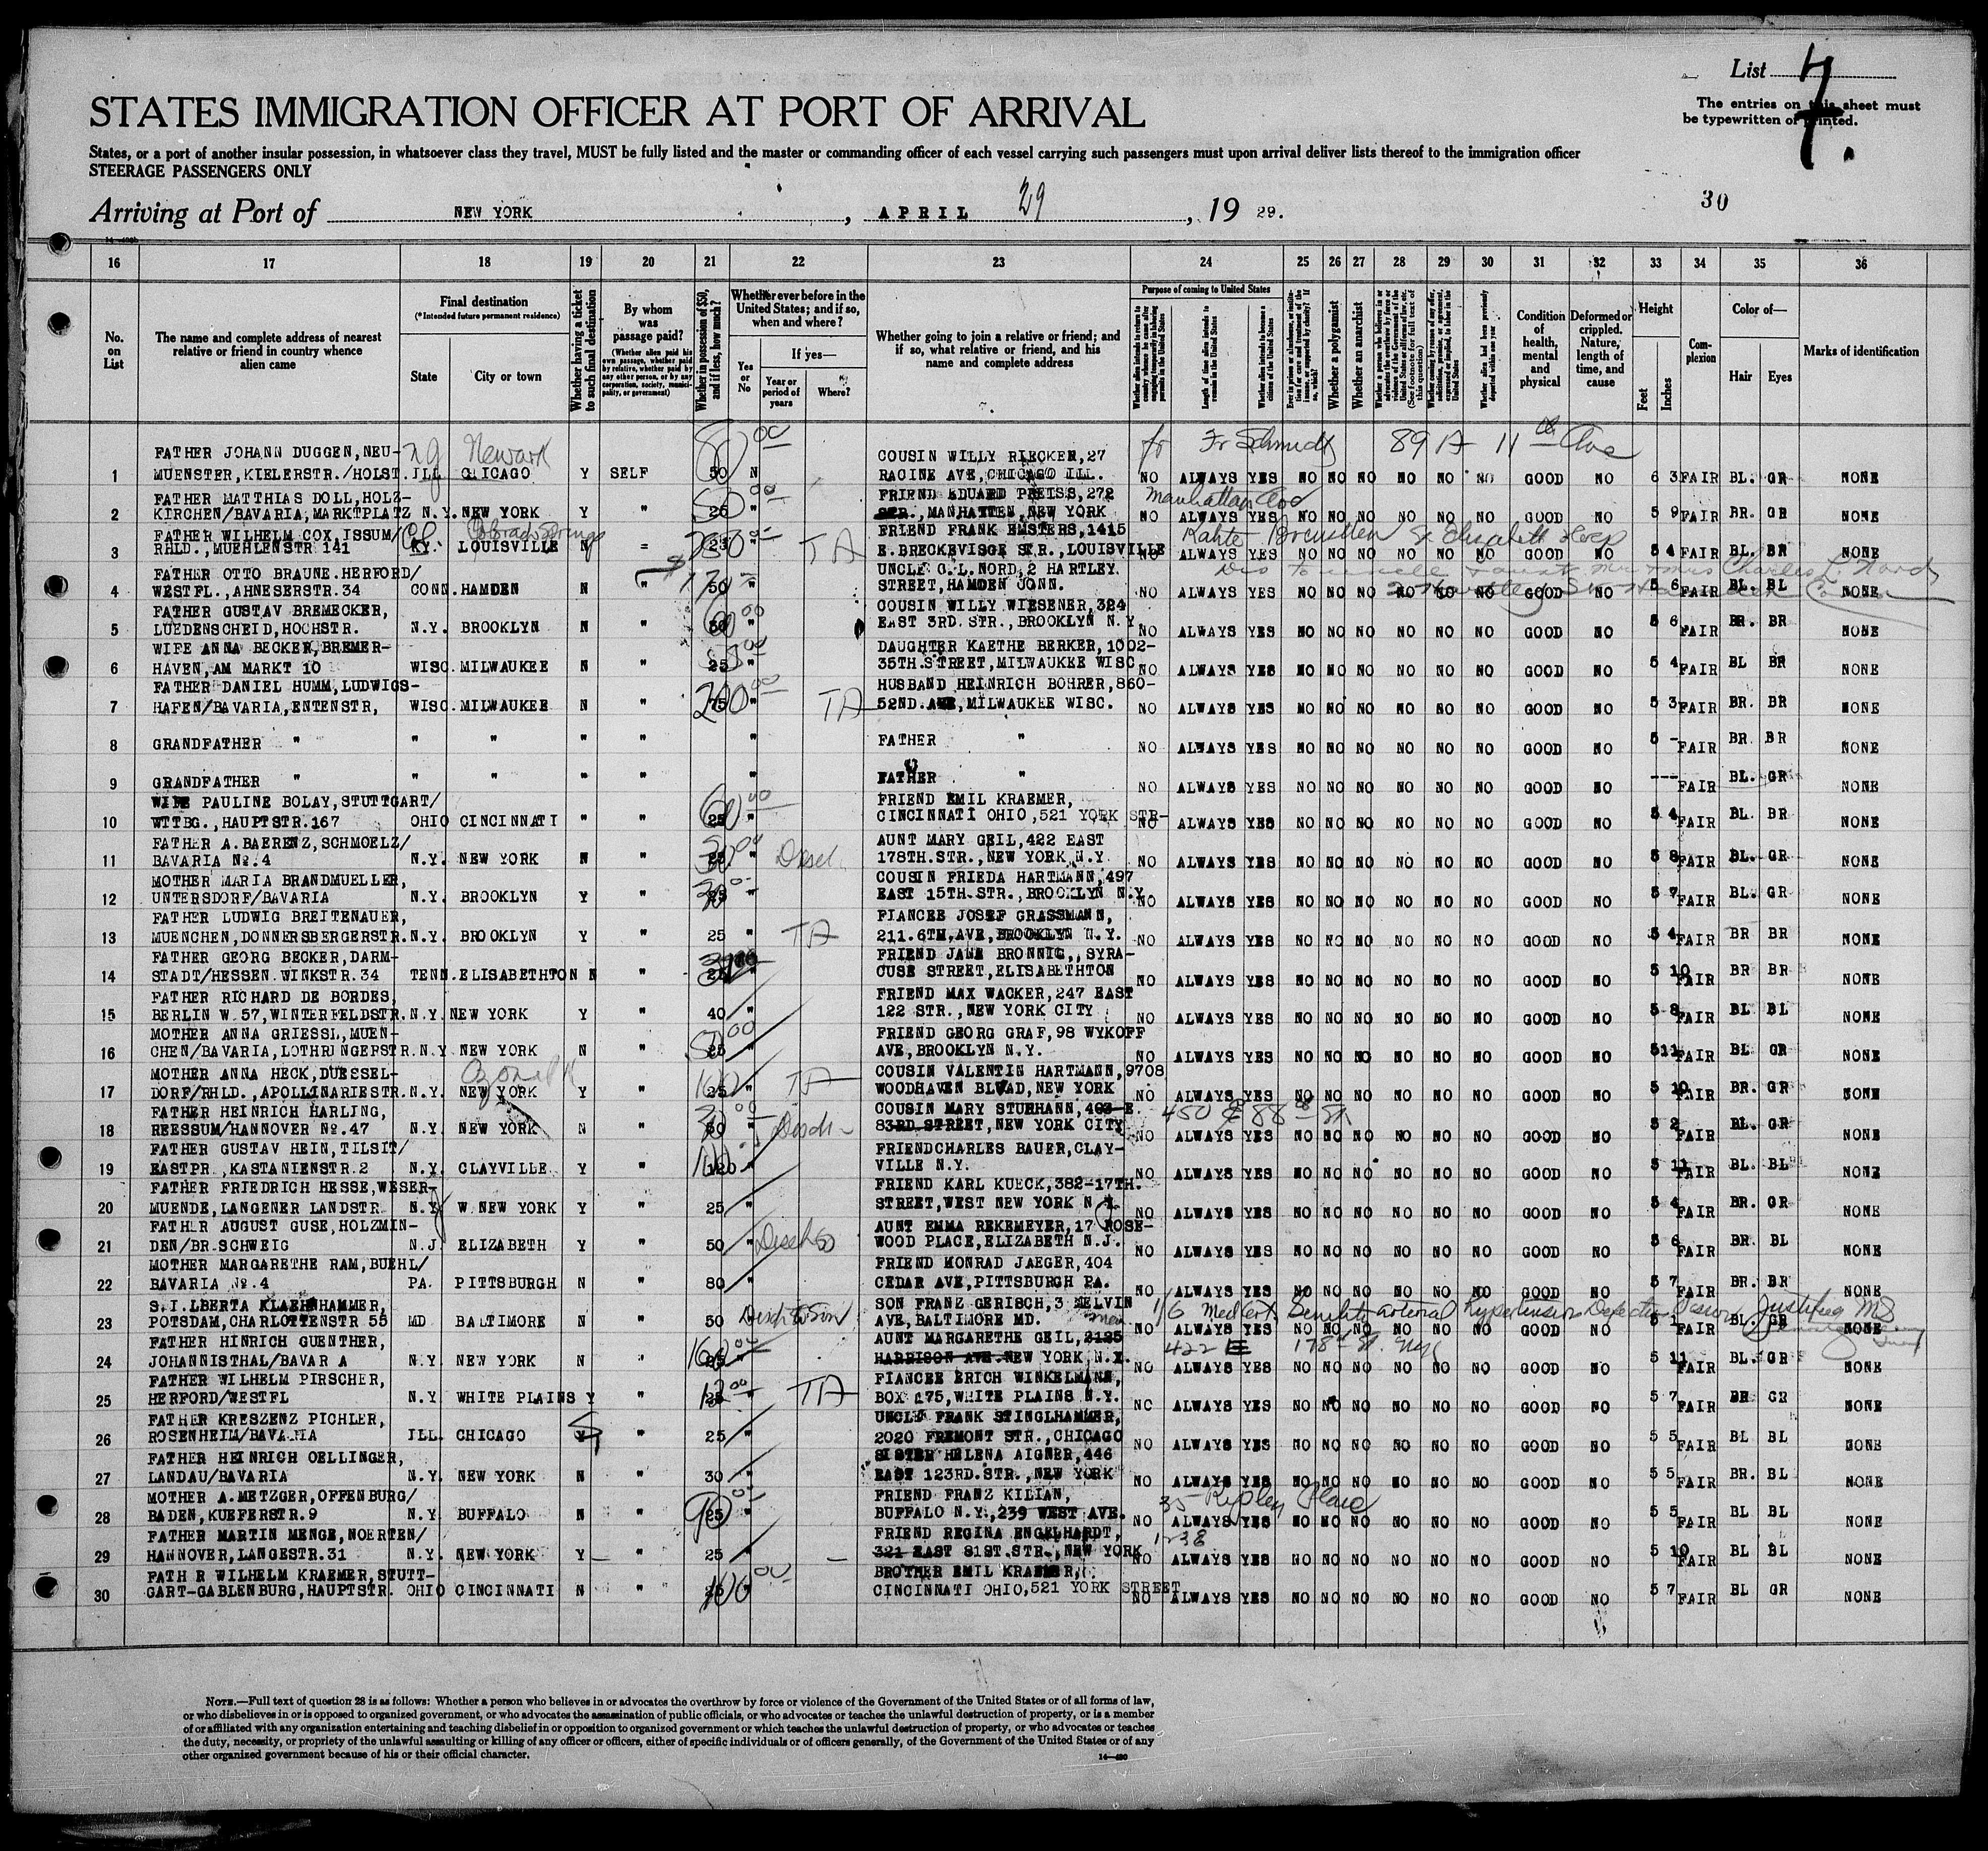 List 7.
The entries on this sheet must
be typewritten or printed.
STATES IMMIGRATION OFFICER AT PORT OF ARRIVAL
States, or a port of another insular possession, in whatsoever class they travel, MUST be fully listed and the master or commanding officer of each vessel carrying such passengers must upon arrival deliver lists thereof to the immigration officer
STEERAGE PASSENGERS ONLY
Arriving at Port of NEW YORK, APRIL 29, 19 29.
30
16 17 18 19 20 21 22 23 24 25 26 27 28 29 30 31 32 33 34 35 36
No. on List
The name and complete address of nearest relative or friend in country whence alien came
Final destination
(*Intended future permanent residence)
State
City or town
Whether having a ticket to such final destination
By whom was passage paid?
(Whether alien paid his own passage, whether paid by relative, whether paid by any other person, or by any corporation, society, municipality, or government)
Whether in possession of $50, and if less, how much?
Whether ever before in the United States; and if so, when and where?
Yes or No
If yes—
Year or period of years
Where?
Whether going to join a relative or friend; and if so, what relative or friend, and his name and complete address
Purpose of coming to United States
Length of time alien intends to remain in the United States
Whether alien intends to become a citizen of the United States
Whether a polygamist
Whether an anarchist
Condition of health, mental and physical
Deformed or crippled. Nature, length of time, and cause
Height
Feet
Inches
Complexion
Color of—
Hair
Eyes
Marks of identification
FATHER JOHANN DUGGEN,NEU- Newark COUSIN WILLY RIECKER,27 Fr Schmidt 89 11th Ave
1 MUENSTER,KIELERSTR./HOLST. ILL CHICAGO Y SELF 50 N RACINE AVE,CHICAGO ILL. NO ALWAYS YES NO NO NO NO NO NO GOOD NO 6 3 FAIR BL. GR NONE
FATHER MATTHIAS DOLL,HOLZ- FRIEND EDUARD PREISS,272 Manhattan Ave
2 KIRCHEN/BAVARIA,MARKTPLATZ N.Y. NEW YORK Y " 25 " STR.,MANHATTEN,NEW YORK NO ALWAYS YES NO NO NO NO NO NO GOOD NO 5 9 FAIR BR. GR NONE
FATHER WILHELM COX,ISSUM/ Col. Colorado Springs FRIEND FRANK EMSTERS,1415
3 RHLD.,MUEHLENSTR 141 KY. LOUISVILLE N = TA E.BRECKEVISGE STR.,LOUISVILLE NO ALWAYS YES NO NO NO NO NO NO GOOD NO 5 4 FAIR BL. BR NONE
FATHER OTTO BRAUNE.HERFORD/ UNCLE G.L.NORD,2 HARTLEY to uncle & aunt Mr & Mrs Charles L. Nord
4 WESTFL.,AHNESERSTR.34 CONN. HAMDEN N " 50 " STREET,HAMDEN JONN. NO ALWAYS YES NO NO NO NO NO NO GOOD NO 5 6 FAIR BL. BL NONE
FATHER GUSTAV BREMECKER, COUSIN WILLY WIESENER,324
5 LUEDENSCHEID,HOCHSTR. N.Y. BROOKLYN N " 50 " EAST 3RD.STR.,BROOKLYN N.Y. NO ALWAYS YES NO NO NO NO NO NO GOOD NO 5 6 FAIR BR. BR NONE
WIFE ANNA BECKER,BREMER- DAUGHTER KAETHE BERKER,1002-
6 HAVEN,AM MARKT 10 WISC. MILWAUKEE N " 25 " 35TH.STREET,MILWAUKEE WISC NO ALWAYS YES NO NO NO NO NO NO GOOD NO 5 4 FAIR BL BR NONE
FATHER DANIEL HUMM,LUDWIGS- HUSBAND HEINRICH BOHRER,860-
7 HAFEN/BAVARIA,ENTENSTR, WISC. MILWAUKEE N " 75 200 " TA 52ND.AVE,MILWAUKEE WISC. NO ALWAYS YES NO NO NO NO NO NO GOOD NO 5 3 FAIR BR. BR NONE
8 GRANDFATHER " " " " " " FATHER " NO ALWAYS YES NO NO NO NO NO NO GOOD NO 5 - FAIR BR. BR NONE
9 GRANDFATHER " " " " " " FATHER " NO ALWAYS YES NO NO NO NO NO NO GOOD NO --- FAIR BL. GR NONE
WIFE PAULINE BOLAY,STUTTGART/ FRIEND EMIL KRAEMER,
10 WTTBG.,HAUPTSTR.167 OHIO CINCINNATI " " 25 60 " CINCINNATI OHIO,521 YORK STR- NO ALWAYS YES NO NO NO NO NO NO GOOD NO 5 4 FAIR BL. BR NONE
FATHER A.BAERENZ,SCHMOELZ/ AUNT MARY GEIL,422 EAST
11 BAVARIA No.4 N.Y. NEW YORK N " 25 " 178TH.STR.,NEW YORK N.Y. NO ALWAYS YES NO NO NO NO NO NO GOOD NO 5 8 FAIR BL. GR NONE
MOTHER MARIA BRANDMUELLER, COUSIN FRIEDA HARTMANN,497
12 UNTERSDORF/BAVARIA N.Y. BROOKLYN Y " 25 " EAST 15TH.STR.,BROOKLYN N.Y. NO ALWAYS YES NO NO NO NO NO NO GOOD NO 5 7 FAIR BL. GR NONE
FATHER LUDWIG BREITENAUER, FIANCEE JOSEF GRASSMANN,
13 MUENCHEN,DONNERSBERGERSTR. N.Y. BROOKLYN Y " 25 " TA 211.6TH,AVE,BROOKLYN N.Y. NO ALWAYS YES NO NO NO NO NO NO GOOD NO 5 4 FAIR BR BR NONE
FATHER GEORG BECKER,DARM- FRIEND JANE BRONNIG,,SYRA-
14 STADT/HESSEN.WINKSTR.34 TENN. ELISABETHTON N " 25 " CUSE STREET,ELISABETHTON NO ALWAYS YES NO NO NO NO NO NO GOOD NO 5 10 FAIR BR BR NONE
FATHER RICHARD DE BORDES, FRIEND MAX WACKER,247 EAST
15 BERLIN W.57,WINTERFELDSTR. N.Y. NEW YORK Y " 40 " 122 STR.,NEW YORK CITY NO ALWAYS YES NO NO NO NO NO NO GOOD NO 5 8 FAIR BL BL NONE
MOTHER ANNA GRIESSL,MUEN- FRIEND GEORG GRAF,98 WYKOFF
16 CHEN/BAVARIA,LOTHRINGERSTR. N.Y. NEW YORK N " 25 50 " AVE,BROOKLYN N.Y. NO ALWAYS YES NO NO NO NO NO NO GOOD NO 5 11 FAIR BL GR NONE
MOTHER ANNA HECK,DUESSEL- Ozone Pk COUSIN VALENTIN HARTMANN,9708
17 DORF/RHLD.,APOLLINARIESTR. N.Y. NEW YORK Y " 25 100 " TA WOODHAVEN BLVAD,NEW YORK NO ALWAYS YES NO NO NO NO NO NO GOOD NO 5 10 FAIR BR. GR NONE
FATHER HEINRICH HARLING, COUSIN MARY STUEHANN,403 E. 450 E 88th St
18 REESSUM/HANNOVER No.47 N.Y. NEW YORK N " Disch- 83RD.STREET,NEW YORK CITY NO ALWAYS YES NO NO NO NO NO NO GOOD NO 5 2 FAIR BL. GR NONE
FATHER GUSTAV HEIN,TILSIT/ FRIENDCHARLES BAUER,CLAY-
19 EASTPR.,KASTANIENSTR.2 N.Y. CLAYVILLE Y " 120 " VILLE N.Y. NO ALWAYS YES NO NO NO NO NO NO GOOD NO 5 11 FAIR BL. BL NONE
FATHER FRIEDRICH HESSE,WESER- FRIEND KARL KUECK,382-17TH.
20 MUENDE,LANGENER LANDSTR N.Y. W.NEW YORK Y " 25 " STREET,WEST NEW YORK N NO ALWAYS YES NO NO NO NO NO NO GOOD NO 5 4 FAIR BR. GR NONE
FATHER AUGUST GUSE,HOLZMIN- AUNT EMMA REKEMEYER,17 ROSE-
21 DEN/BR.SCHWEIG N.J. ELIZABETH Y " 50 " Disch WOOD PLACE,ELIZABETH N.J. NO ALWAYS YES NO NO NO NO NO NO GOOD NO 5 6 FAIR BR. BL NONE
MOTHER MARGARETHE RAM,BUEHL/ FRIEND KONRAD JAEGER,404
22 BAVARIA No.4 PA. PITTSBURGH N " 80 " CEDAR AVE,PITTSBURGH PA. NO ALWAYS YES NO NO NO NO NO NO GOOD NO 5 7 FAIR BR. BR NONE
S.I.LBERTA KLAEHNHAMMER, Disch to Son SON FRANZ GERISCH,3 MELVIN Med Cert. Senility arterial hypertension Defective Vision
23 POTSDAM,CHARLOTTENSTR 55 MD BALTIMORE N " 50 AVE,BALTIMORE MD. NO ALWAYS YES NO NO NO NO NO NO GOOD NO 5 1 FAIR BL. GR NONE
FATHER HINRICH GUENTHER, AUNT MARGARETHE GEIL,2125 422 E 178th St. NYC
24 JOHANNISTHAL/BAVAR A N.Y. NEW YORK N " 25 " HARRISON AVE.NEW YORK,N.Y. NO ALWAYS YES NO NO NO NO NO NO GOOD NO 5 11 FAIR BL. GR NONE
FATHER WILHELM PIRSCHER, FIANCEE ERICH WINKELMANN,
25 HERFORD/WESTFL N.Y. WHITE PLAINS Y " 25 " TA BOX 175,WHITE PLAINS N.Y. NO ALWAYS YES NO NO NO NO NO NO GOOD NO 5 7 FAIR BR GR NONE
FATHER KRESZENZ PICHLER, UNCLE FRANK STINGLHAMMER,
26 ROSENHEIM/BAVARIA ILL. CHICAGO " 25 " 2020 FREMONT STR.,CHICAGO NO ALWAYS YES NO NO NO NO NO NO GOOD NO 5 5 FAIR BL BL NONE
FATHER HEINRICH OELLINGER, SISTER HELENA AIGNER,446
27 LANDAU/BAVARIA N.Y. NEW YORK N " 30 " EAST 123RD.STR.,NEW YORK NO ALWAYS YES NO NO NO NO NO NO GOOD NO 5 5 FAIR BR. BL NONE
MOTHER A.METZGER,OFFENBURG/ FRIEND FRANZ KILIAN, 35 Ripley Place
28 BADEN,KUEFERSTR.9 N.Y. BUFFALO N " 25 90 " BUFFALO N.Y.,239 WEST AVE. NO ALWAYS YES NO NO NO NO NO NO GOOD NO 5 5 FAIR BL BL NONE
FATHER MARTIN MENGE,NOERTEN/ FRIEND REGINA ENGELHARDT, 1238
29 HANNOVER,LANGESTR.31 N.Y. NEW YORK Y " 25 " 321 EAST 81ST.STR.,NEW YORK NO ALWAYS YES NO NO NO NO NO NO GOOD NO 5 10 FAIR BL BL NONE
FATH R WILHELM KRAEMER,STUTT- BROTHER EMIL KRAEMER,
30 GART-GABLENBURG,HAUPTSTR. OHIO CINCINNATI N " 25 100 " CINCINNATI OHIO,521 YORK STREET NO ALWAYS YES NO NO NO NO NO NO GOOD NO 5 7 FAIR BL GR NONE
NOTE.—Full text of question 28 is as follows: Whether a person who believes in or advocates the overthrow by force or violence of the Government of the United States or of all forms of law,
or who disbelieves in or is opposed to organized government, or who advocates the assassination of public officials, or who advocates or teaches the unlawful destruction of property, or is a member
of or affiliated with any organization entertaining and teaching disbelief in or opposition to organized government or which teaches the unlawful destruction of property, or who advocates or teaches
the duty, necessity, or propriety of the unlawful assaulting or killing of any officer or officers, either of specific individuals or of officers generally, of the Government of the United States or of any
other organized government because of his or their official character.
14—480